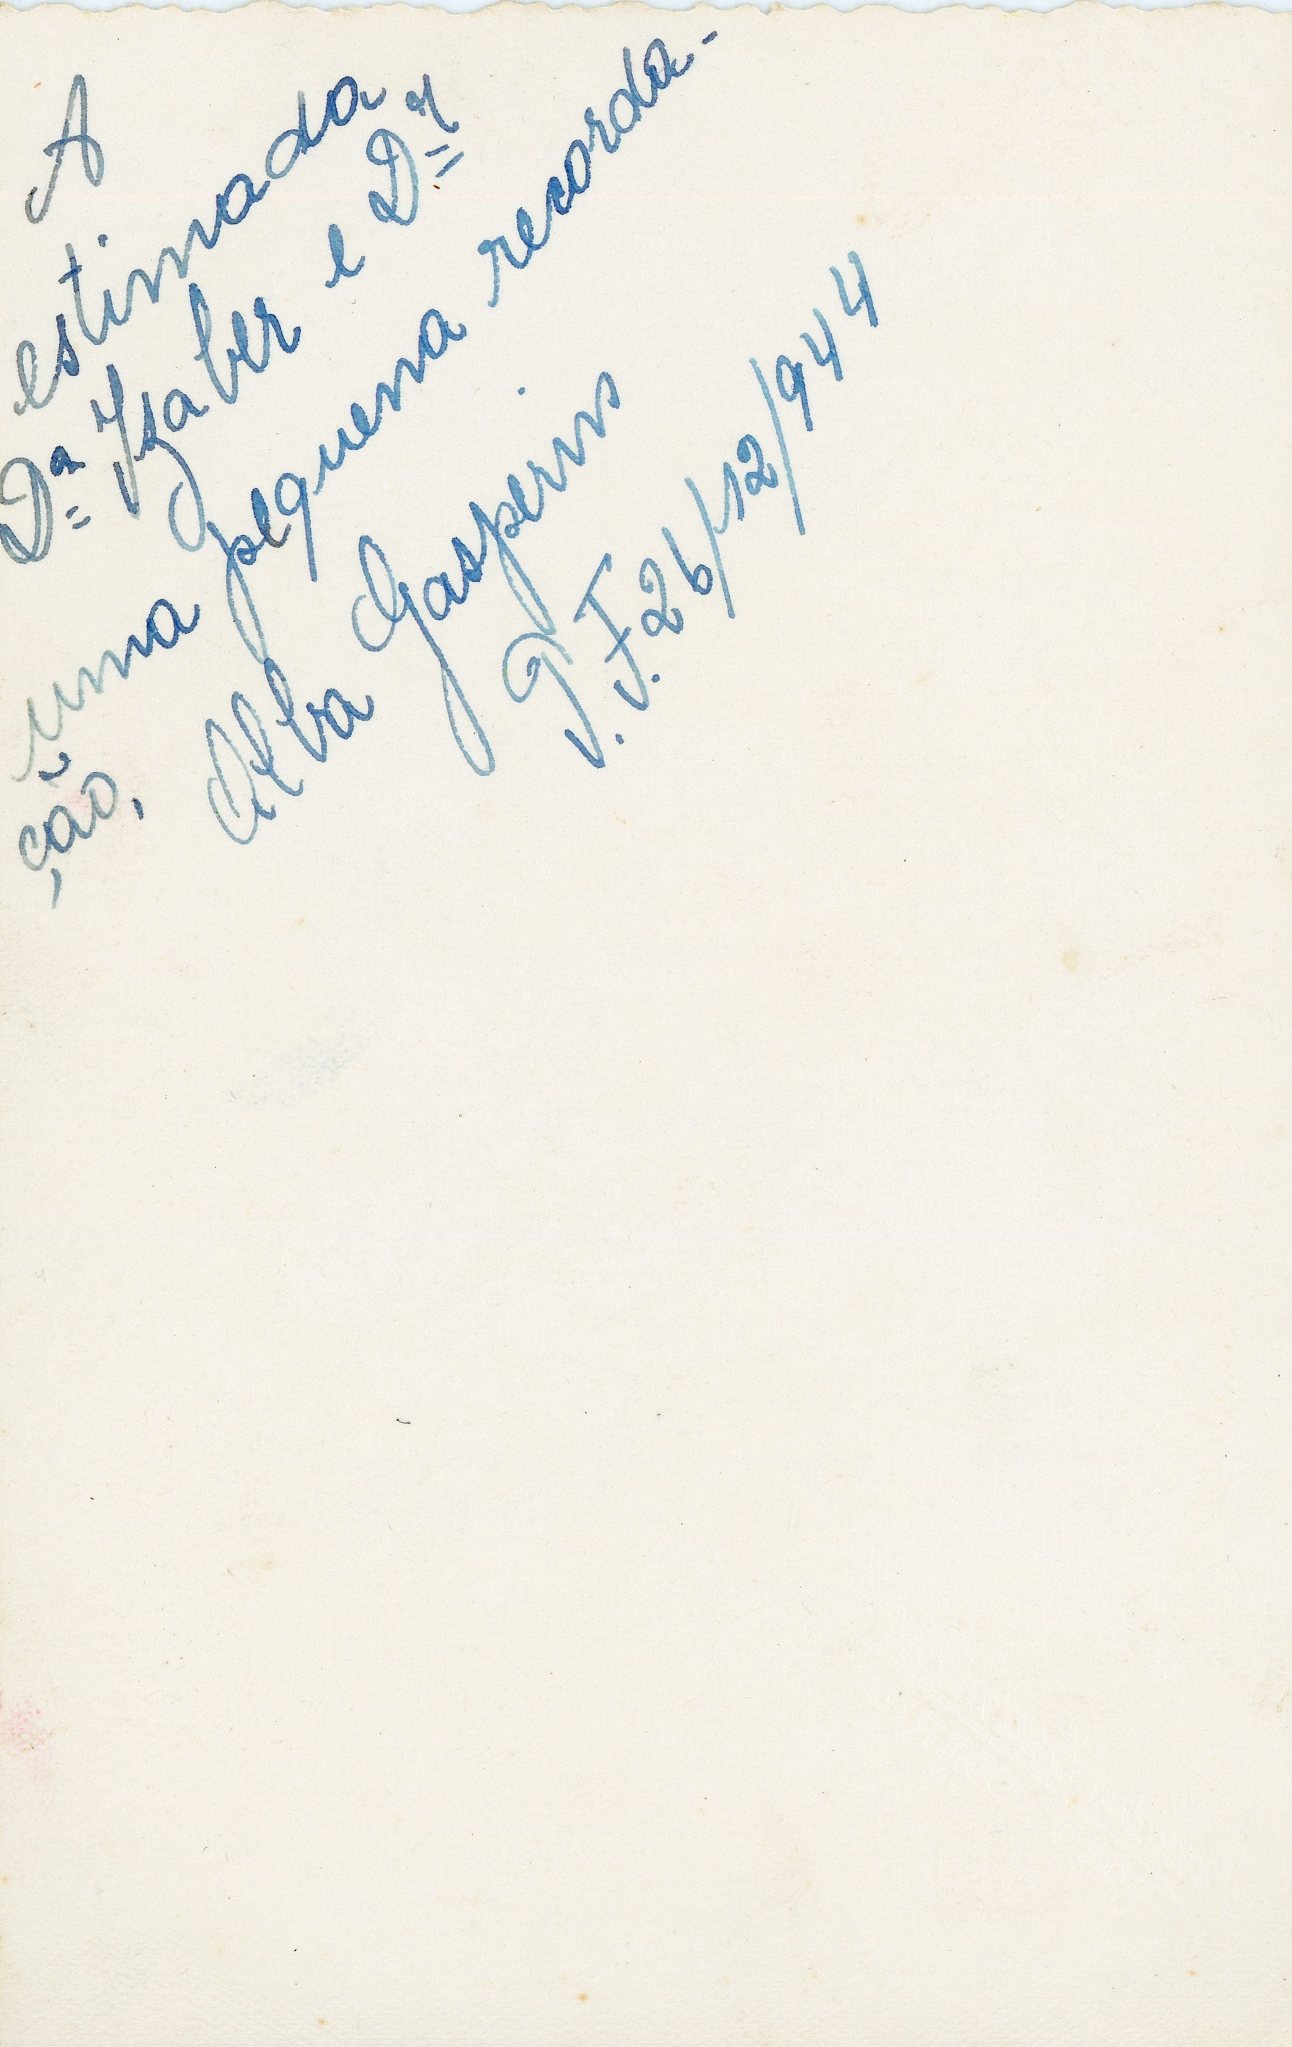 A
estimada
Dª Izaber e Dr
uma pequena recorda-
ção,
Alva Gasperin
P. F. 26/12/944